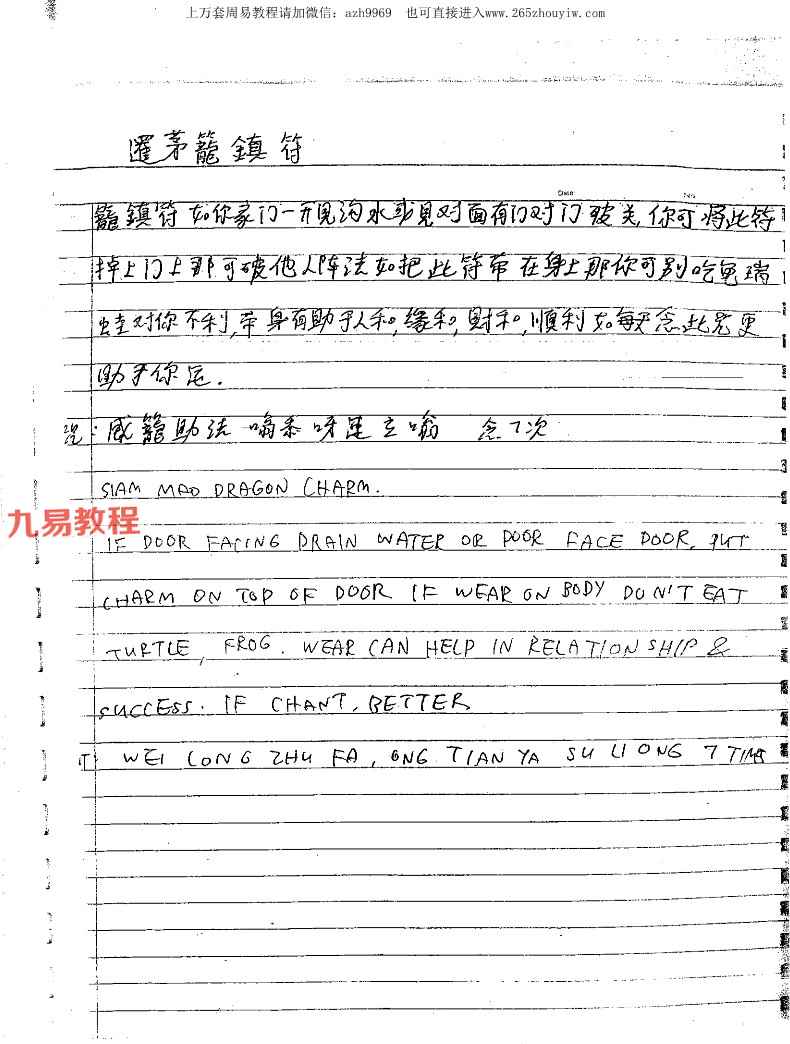 上万套周易教程请加微信：azh9969 也可直接进入www.265zhouyiw.com
暹茅籠鎮符
Date No
籠鎮符 如你家门一开见沟水或見对面有门对门破关,你可将此符
掉上门上那可破他人阵法如把此符带在身上那你可别吃龟瑞
蛙对你不利,带身有助于人和,缘和,财和,順利如每天念此咒更
助于你
咒:威籠助法 念7次
SIAM MAO DRAGON CHARM.
九易教程
IF DOOR FACING DRAIN WATER OR DOOR FACE DOOR, PUT
CHARM ON TOP OF DOOR IF WEAR ON BODY DON'T EAT
TURTLE, FROG. WEAR CAN HELP IN RELATIONSHIP &
SUCCESS. IF CHANT, BETTER
T: WEI LONG ZHU FA, ONG TIAN YA SU LIONG 7 TIME